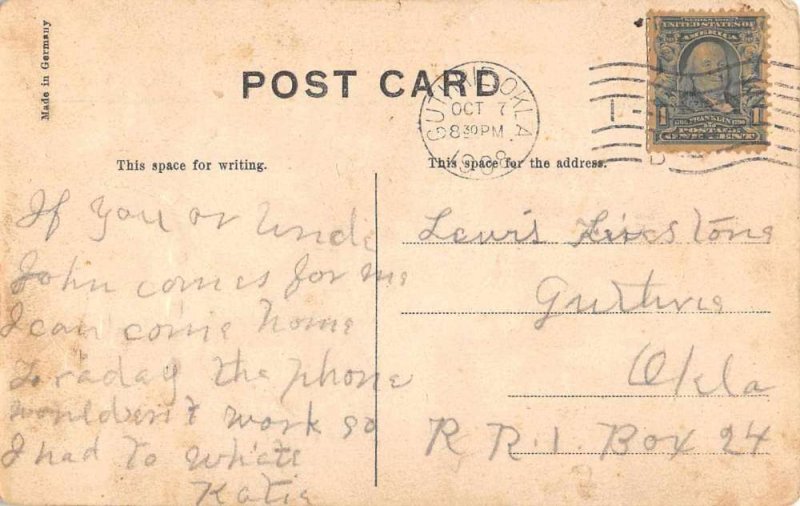 Made in Germany
POST CARD
GUTHRIE OKLA.
OCT 7
8 30 PM
1908
SERIES 1902
UNITED STATES OF
AMERICA
1 FRANKLIN 1
POSTAGE
ONE CENT
This space for writing.
This space for the address.
If you or Uncle
John comes for me
I can come home
to raday the phone
wouldent work so
I had to white
Katie
Lewis Livestone
Gurthrie
Okla
R R. 1. Box 24